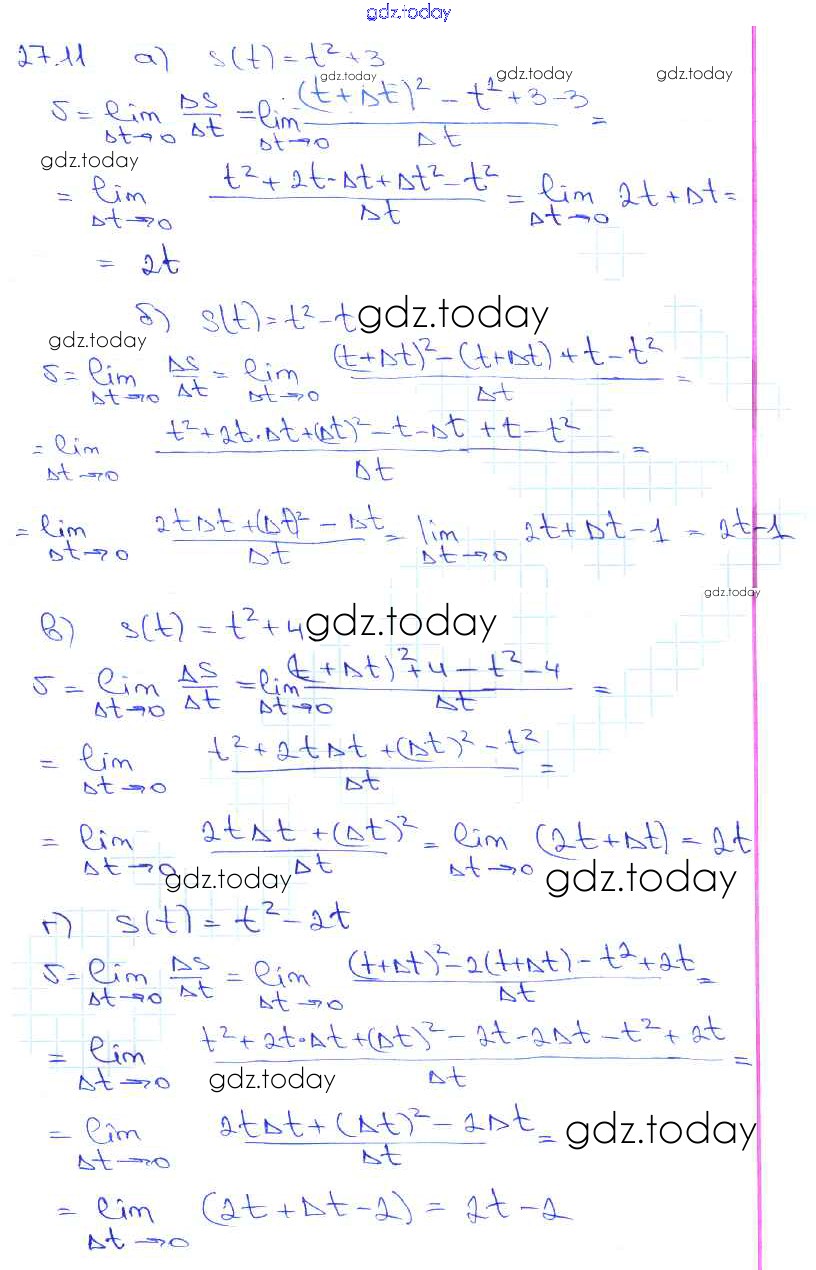 gdz.today
27.11 а) s(t) = t² + 3
gdz.today gdz.today gdz.today
υ = lim Δt→0 ΔS/Δt = lim Δt→0 ((t + Δt)² - t² + 3 - 3)/Δt =
gdz.today
= lim Δt→0 (t² + 2t·Δt + Δt² - t²)/Δt = lim Δt→0 2t + Δt =
= 2t
б) s(t) = t² - t gdz.today
gdz.today
υ = lim Δt→0 ΔS/Δt = lim Δt→0 ((t + Δt)² - (t + Δt) + t - t²)/Δt =
= lim Δt→0 (t² + 2t·Δt + (Δt)² - t - Δt + t - t²)/Δt =
= lim Δt→0 (2tΔt + (Δt)² - Δt)/Δt = lim Δt→0 2t + Δt - 1 = 2t - 1
gdz.today
в) s(t) = t² + 4 gdz.today
υ = lim Δt→0 ΔS/Δt = lim Δt→0 ((t + Δt)² + 4 - t² - 4)/Δt =
= lim Δt→0 (t² + 2tΔt + (Δt)² - t²)/Δt =
= lim Δt→0 (2tΔt + (Δt)²)/Δt = lim Δt→0 (2t + Δt) = 2t
gdz.today gdz.today
г) s(t) = t² - 2t
υ = lim Δt→0 ΔS/Δt = lim Δt→0 ((t + Δt)² - 2(t + Δt) - t² + 2t)/Δt =
= lim Δt→0 (t² + 2t·Δt + (Δt)² - 2t - 2Δt - t² + 2t)/Δt =
gdz.today
= lim Δt→0 (2tΔt + (Δt)² - 2Δt)/Δt = gdz.today
= lim Δt→0 (2t + Δt - 2) = 2t - 2